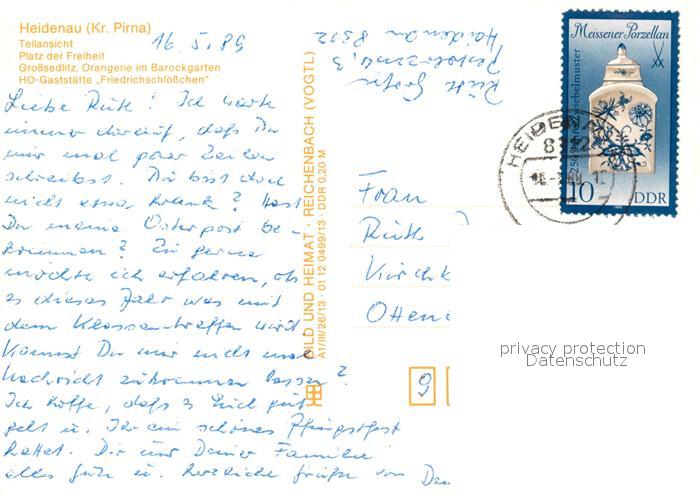 Heidenau (Kr. Pirna)
Teilansicht
Platz der Freiheit
Großsedlitz, Orangerie im Barockgarten
HO-Gaststätte „Friedrichschlößchen"
16. 5. 89
Liebe Ruth! Ich warte
immer darauf, daß Du
mir mal paar Zeilen
schreibst. Du bist doch
nicht etwa krank? Hast
Du meine Osterpost be-
kommen? Zu gerne
möchte ich erfahren, ob
es dieses Jahr was mit
dem Klassentreffen wird.
Kannst Du mir nicht mal
Nachricht zukommen lassen?
Ich hoffe, daß es Euch gut
geht u. Ihr ein schönes Pfingstfest
hattet. Dir und Deiner Familie
alles Gute u. herzliche Grüße von
BILD UND HEIMAT · REICHENBACH (VOGTL)
A1/III/26/13 01 12 0499/13 DDR 0,20 M
Ruth
Heidenau 8312
Meissener Porzellan
Zwiebelmuster
10
DDR
HEIDENAU
Frau
Ruth
Kirchb
Ottend
9
privacy protection
Datenschutz